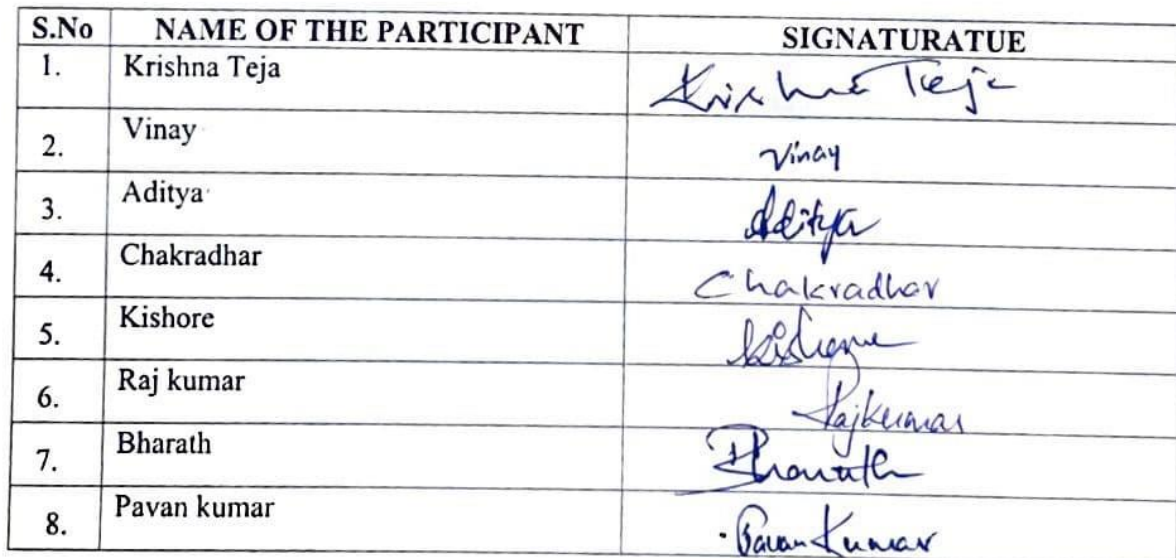 S.No NAME OF THE PARTICIPANT SIGNATURATUE
1. Krishna Teja Krishna Teja
2. Vinay Vinay
3. Aditya Aditya
4. Chakradhar Chakradhar
5. Kishore Kishore
6. Raj kumar Rajkumar
7. Bharath Bharath
8. Pavan kumar Pavan Kumar